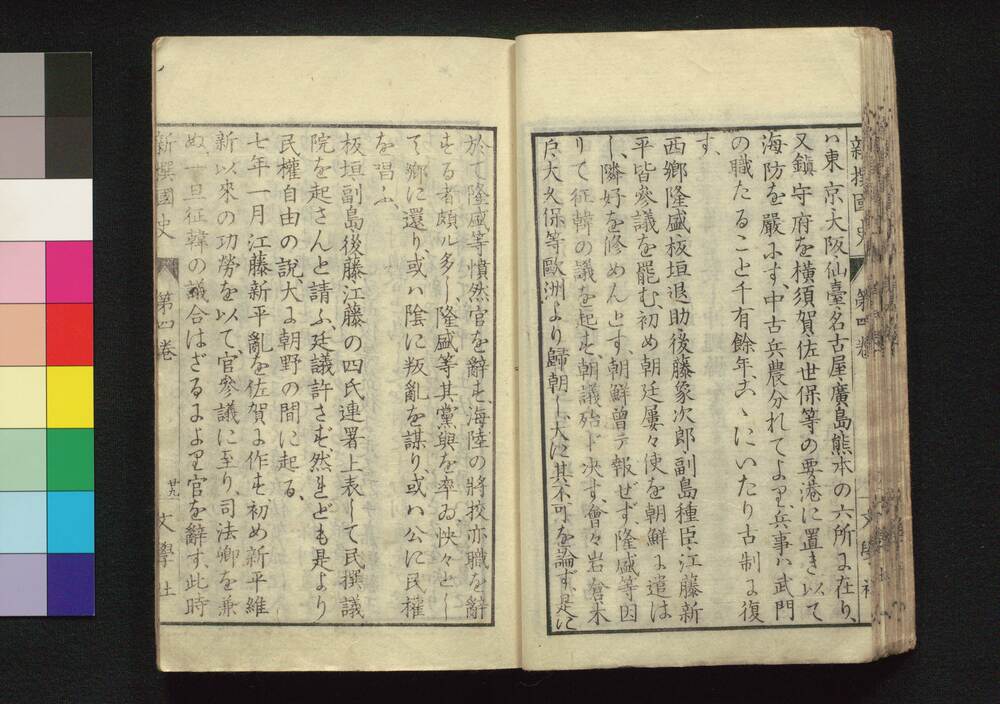 新撰國史 第四卷 文學社
ハ東京大阪仙臺名古屋廣島熊本の六所に在り、
又鎮守府を横須賀佐世保等の要港に置き以て
海防を嚴にす、中古兵農分れてより、兵事ハ武門
の職たること千有餘年、こゝにいたり古制に復
す、
西鄕隆盛板垣退助後藤象次郎副島種臣江藤新
平皆參議を罷む、初め朝廷屢々使を朝鮮に遣は
し、隣好を修めんとす、朝鮮曾テ報ぜず、隆盛等因
りて征韓の議を起せ、朝議殆ド决す、會々岩倉木
戸大久保等歐洲より歸朝し、大に其不可を論ず、是に
於て隆盛等憤然官を辭せ、海陸の將校亦職を辭
せる者頗ル多し、隆盛等其黨與を率ゐ、怏々とし
て鄕に還り、或ハ陰に叛亂を謀り、或ハ公に民權
を唱ふ、
板垣副島後藤江藤の四氏連署上表して民撰議
院を起さんと請ふ、廷議許さず、然れども是より
民權自由の説、大に朝野の間に起る、
七年一月江藤新平亂を佐賀に作す、初め新平維
新以來の功勞を以て官參議に至り、司法卿を兼
ぬ、一旦征韓の議合はざるにより官を辭す、此時
新撰國史 第四卷 廿九 文學社